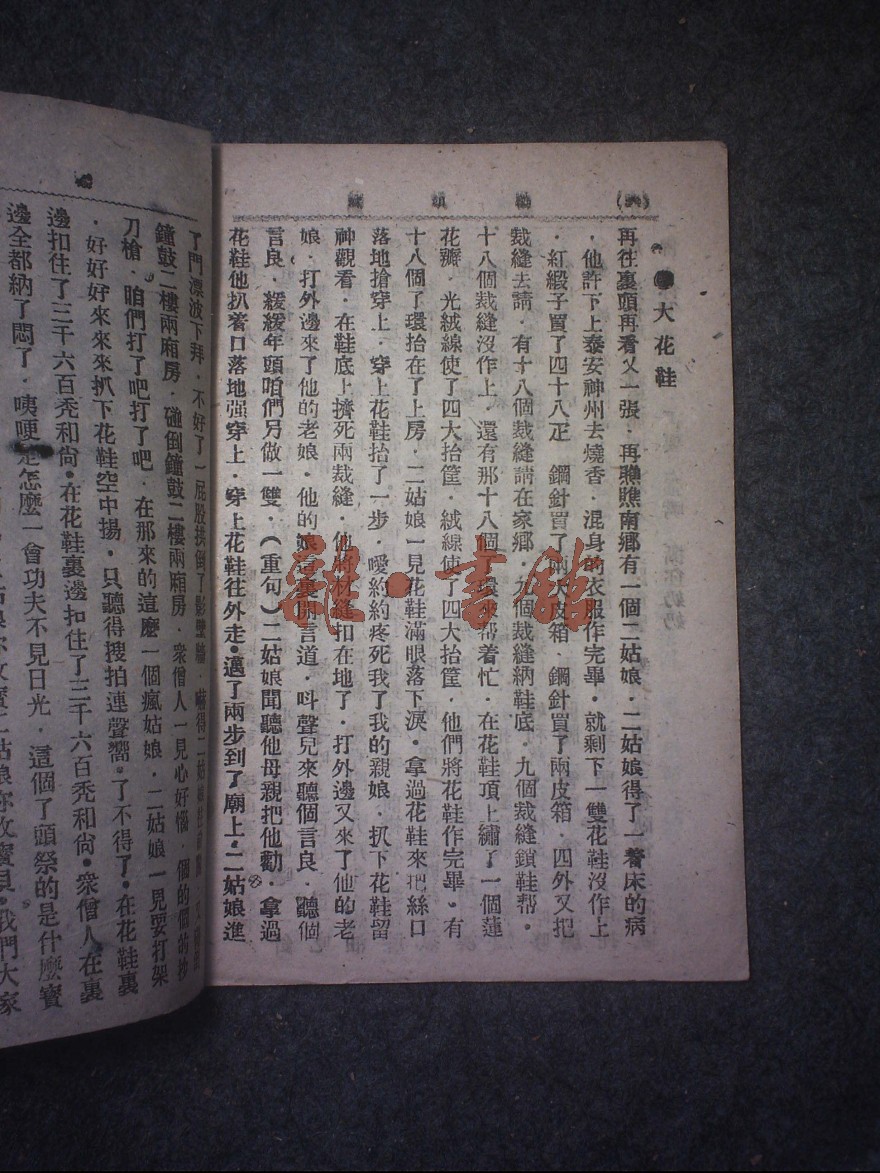 大花鞋
再往裏頭再看乂一張．再瞧瞧南鄉有一個二姑娘．二姑娘得了一着床的病
．他許下上泰安神州去燒香．混身的衣服作完畢．就剩下一雙花鞋沒作上
．紅緞子買了四十八疋 鋼針買了兩大皮箱．鋼針買了兩皮箱．四外又把
裁縫去請．有十八個裁縫請在家鄉．九個裁縫納鞋底．九個裁縫鎖鞋帮．
十八個裁縫沒作上．還有那十八個了環來帮着忙．在花鞋頂上繡了一個蓮
花瓣．光絨線使了四大抬筐．絨線使了四大抬筐．他們將花鞋作完畢．有
十八個了環抬在了上房．二姑娘一見花鞋滿眼落下淚．拿過花鞋來把絲口
落地搶穿上．穿上花鞋抬了一步．噯約約疼死我了我的親娘．扒下花鞋留
神觀看．在鞋底上擠死兩裁縫．他將材縫扣在地了．打外邊又來了他的老
娘．打外邊來了他的老娘．他的娘這裏開言道．呌聲兒來聽個言良．聽個
言良．緩緩年頭咱們另做一雙．(重句)二姑娘聞聽他母親把他勸．拿過
花鞋他扒着口落地强穿上．穿上花鞋往外走．邁了兩步到了廟上．二姑娘進
了門漂波下拜．不好了一屁股挨倒了影壁牆
鐘鼓二樓兩廂房．碰倒鐘鼓二樓兩廂房．衆僧人一見心好惱
刀槍．咱們打了吧打了吧．在那來的這麽一個瘋姑娘．二姑娘一見要打架
．好好好來來來扒下花鞋空中揚．只聽得搜拍連聲嚮．了不得了．在花鞋裏
邊扣住了三千六百禿和尙．在花鞋裏邊扣住了三千六百禿和尙．衆僧人在裏
邊全都納了悶了．咦哽是怎麽一會功夫不見日光．這個了頭祭的是什麽寶
我們大家
雜·書館